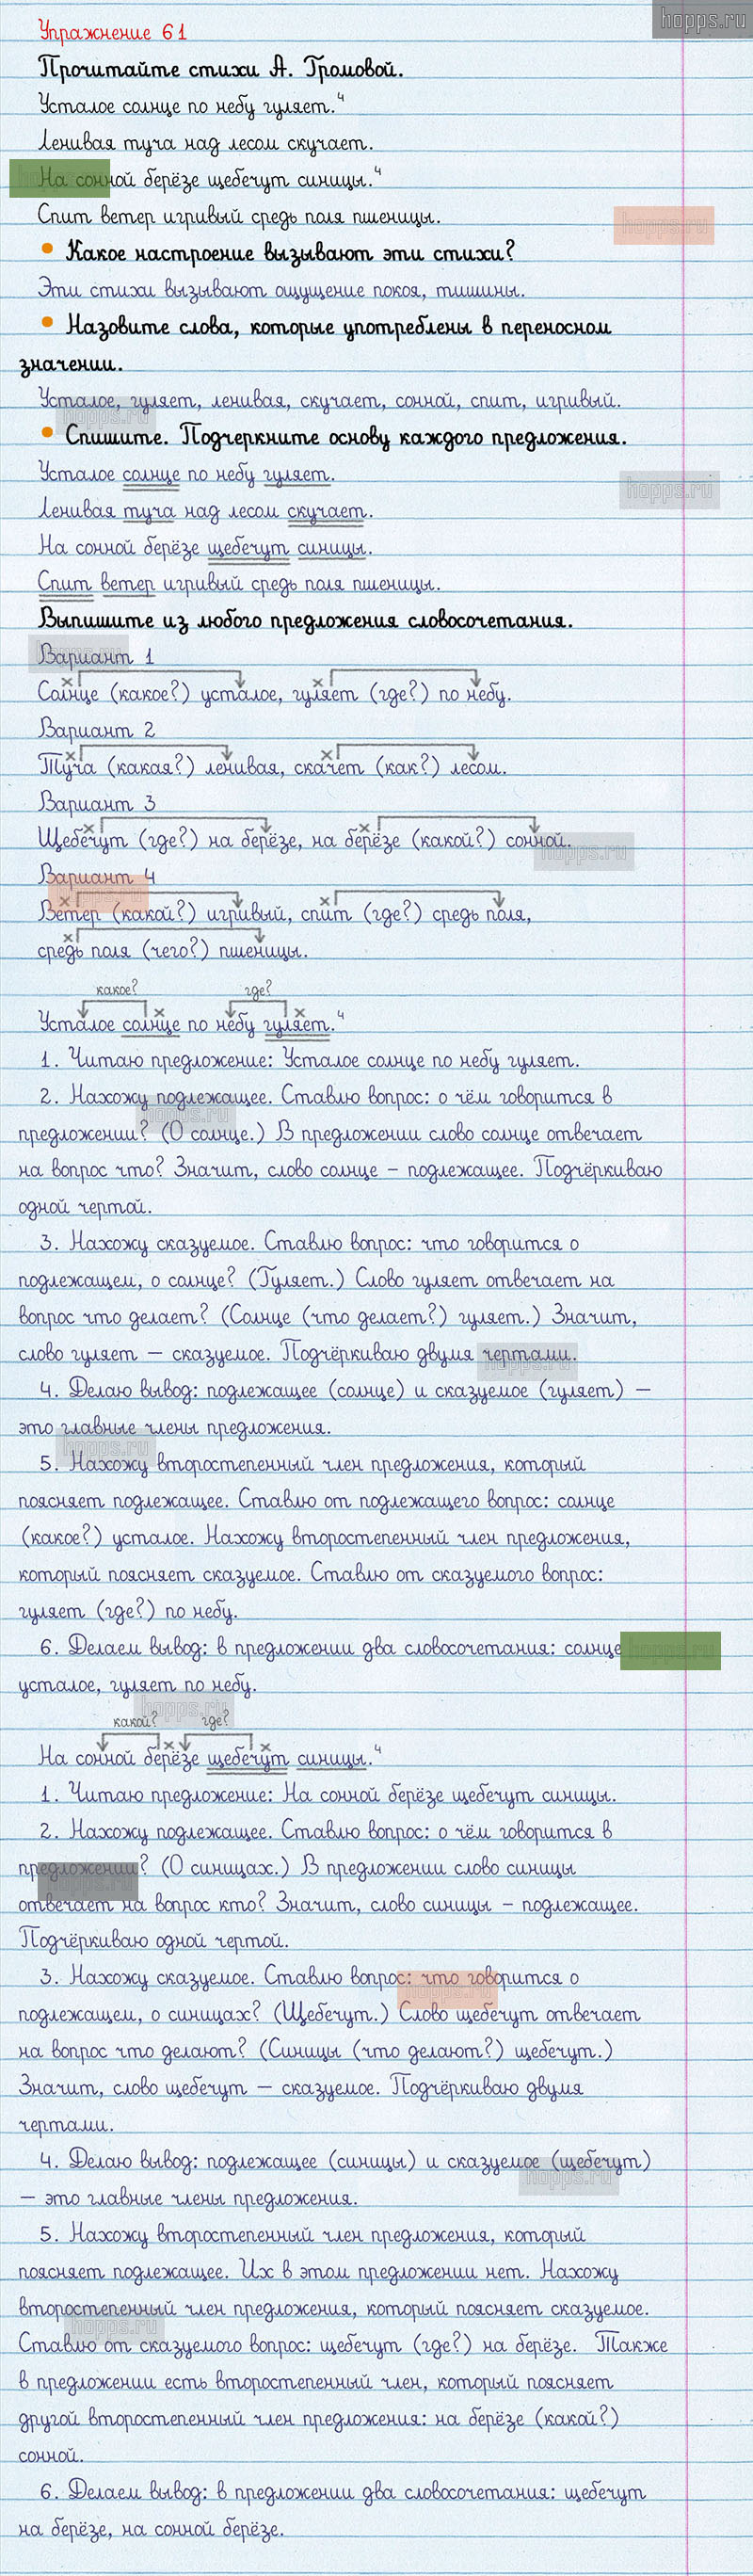 hopps.ru
Упражнение 61
Прочитайте стихи А. Громовой.
Усталое солнце по небу гуляет.⁴
Ленивая туча над лесом скучает.
На сонной берёзе щебечут синицы.⁴
Спит ветер игривый средь поля пшеницы.
hopps.ru
• Какое настроение вызывают эти стихи?
Эти стихи вызывают ощущение покоя, тишины.
• Назовите слова, которые употреблены в переносном
значении.
Усталое, гуляет, ленивая, скучает, сонной, спит, игривый.
hopps.ru
• Спишите. Подчеркните основу каждого предложения.
Усталое солнце по небу гуляет.
hopps.ru
Ленивая туча над лесом скучает.
На сонной берёзе щебечут синицы.
Спит ветер игривый средь поля пшеницы.
Выпишите из любого предложения словосочетания.
hopps.ru
Вариант 1
Солнце (какое?) усталое, гуляет (где?) по небу.
Вариант 2
Туча (какая?) ленивая, скачет (как?) лесом.
Вариант 3
Щебечут (где?) на берёзе, на берёзе (какой?) сонной.
hopps.ru
Вариант 4
Ветер (какой?) игривый, спит (где?) средь поля,
средь поля (чего?) пшеницы.
какое? где?
Усталое солнце по небу гуляет.⁴
1. Читаю предложение: Усталое солнце по небу гуляет.
2. Нахожу подлежащее. Ставлю вопрос: о чём говорится в
hopps.ru
предложении? (О солнце.) В предложении слово солнце отвечает
на вопрос что? Значит, слово солнце – подлежащее. Подчёркиваю
одной чертой.
3. Нахожу сказуемое. Ставлю вопрос: что говорится о
подлежащем, о солнце? (Гуляет.) Слово гуляет отвечает на
вопрос что делает? (Солнце (что делает?) гуляет.) Значит,
слово гуляет — сказуемое. Подчёркиваю двумя чертами.
hopps.ru
4. Делаю вывод: подлежащее (солнце) и сказуемое (гуляет) —
это главные члены предложения.
hopps.ru
5. Нахожу второстепенный член предложения, который
поясняет подлежащее. Ставлю от подлежащего вопрос: солнце
(какое?) усталое. Нахожу второстепенный член предложения,
который поясняет сказуемое. Ставлю от сказуемого вопрос:
гуляет (где?) по небу.
6. Делаем вывод: в предложении два словосочетания: солнце
hopps.ru
усталое, гуляет по небу.
hopps.ru
какой? где?
На сонной берёзе щебечут синицы.⁴
1. Читаю предложение: На сонной берёзе щебечут синицы.
2. Нахожу подлежащее. Ставлю вопрос: о чём говорится в
предложении? (О синицах.) В предложении слово синицы
hopps.ru
отвечает на вопрос кто? Значит, слово синицы – подлежащее.
Подчёркиваю одной чертой.
3. Нахожу сказуемое. Ставлю вопрос: что говорится о
hopps.ru
подлежащем, о синицах? (Щебечут.) Слово щебечут отвечает
на вопрос что делают? (Синицы (что делают?) щебечут.)
Значит, слово щебечут — сказуемое. Подчёркиваю двумя
чертами.
4. Делаю вывод: подлежащее (синицы) и сказуемое (щебечут)
hopps.ru
— это главные члены предложения.
5. Нахожу второстепенный член предложения, который
поясняет подлежащее. Их в этом предложении нет. Нахожу
второстепенный член предложения, который поясняет сказуемое.
hopps.ru
Ставлю от сказуемого вопрос: щебечут (где?) на берёзе. Также
в предложении есть второстепенный член, который поясняет
другой второстепенный член предложения: на берёзе (какой?)
сонной.
6. Делаем вывод: в предложении два словосочетания: щебечут
на берёзе, на сонной берёзе.